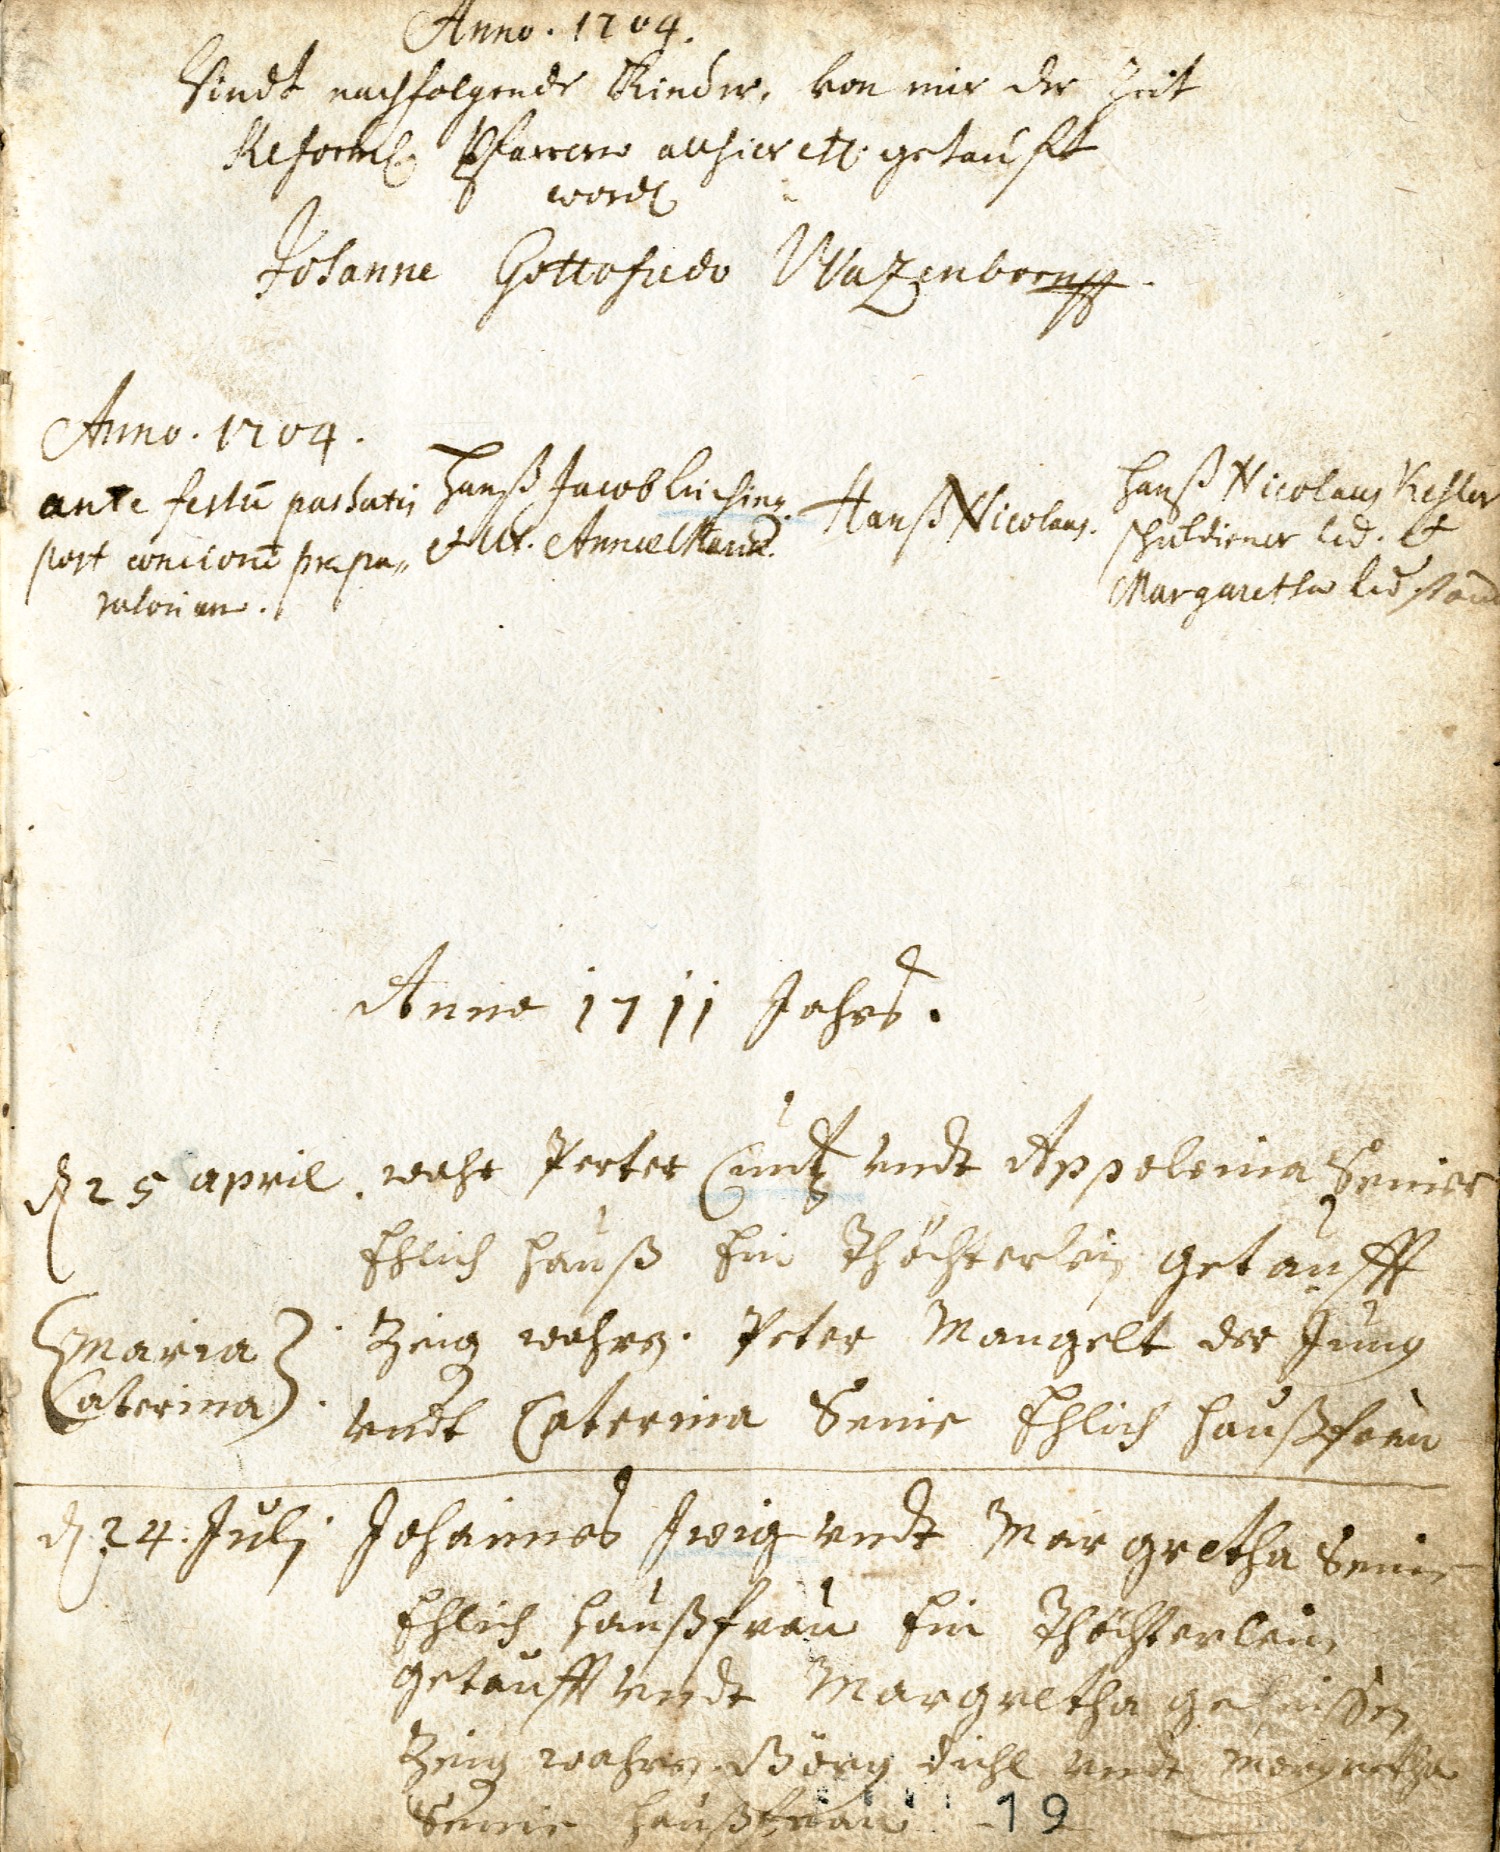 Anno. 1704.
Sindt nachfolgende Kinder, von mir der Zeit
Reform. Pfarrern alhier ett. getaufft
word
Johanne Gottofredo Wazenborn
Anno. 1704.
ante festū paschatis
post concionē præpa„
ratoriam.
Hanß Jacob
et Ux.
Hanß Nicolaus.
Hanß Nicolaus Keßler
schuldiener led. et
Margaretha led
Anno 1711 Jahrs.
d 25 april. wahr Perter Cuntz undt Appelonia Seiner
Ehlich hauß Ein Thöchterlein getaufft
Maria
Caterina
Zeig wahren. Peter Mangelt der Jung
undt Caterina Seine Ehlich haußfrau
d. 24. Julj Johannes undt Margretha Seine
Ehlich haußfrau Ein Thöchterlein
getaufft undt Margretha geheissen
Zeig wahren Görg Diehl undt Margretha
Seine haußfrau
19